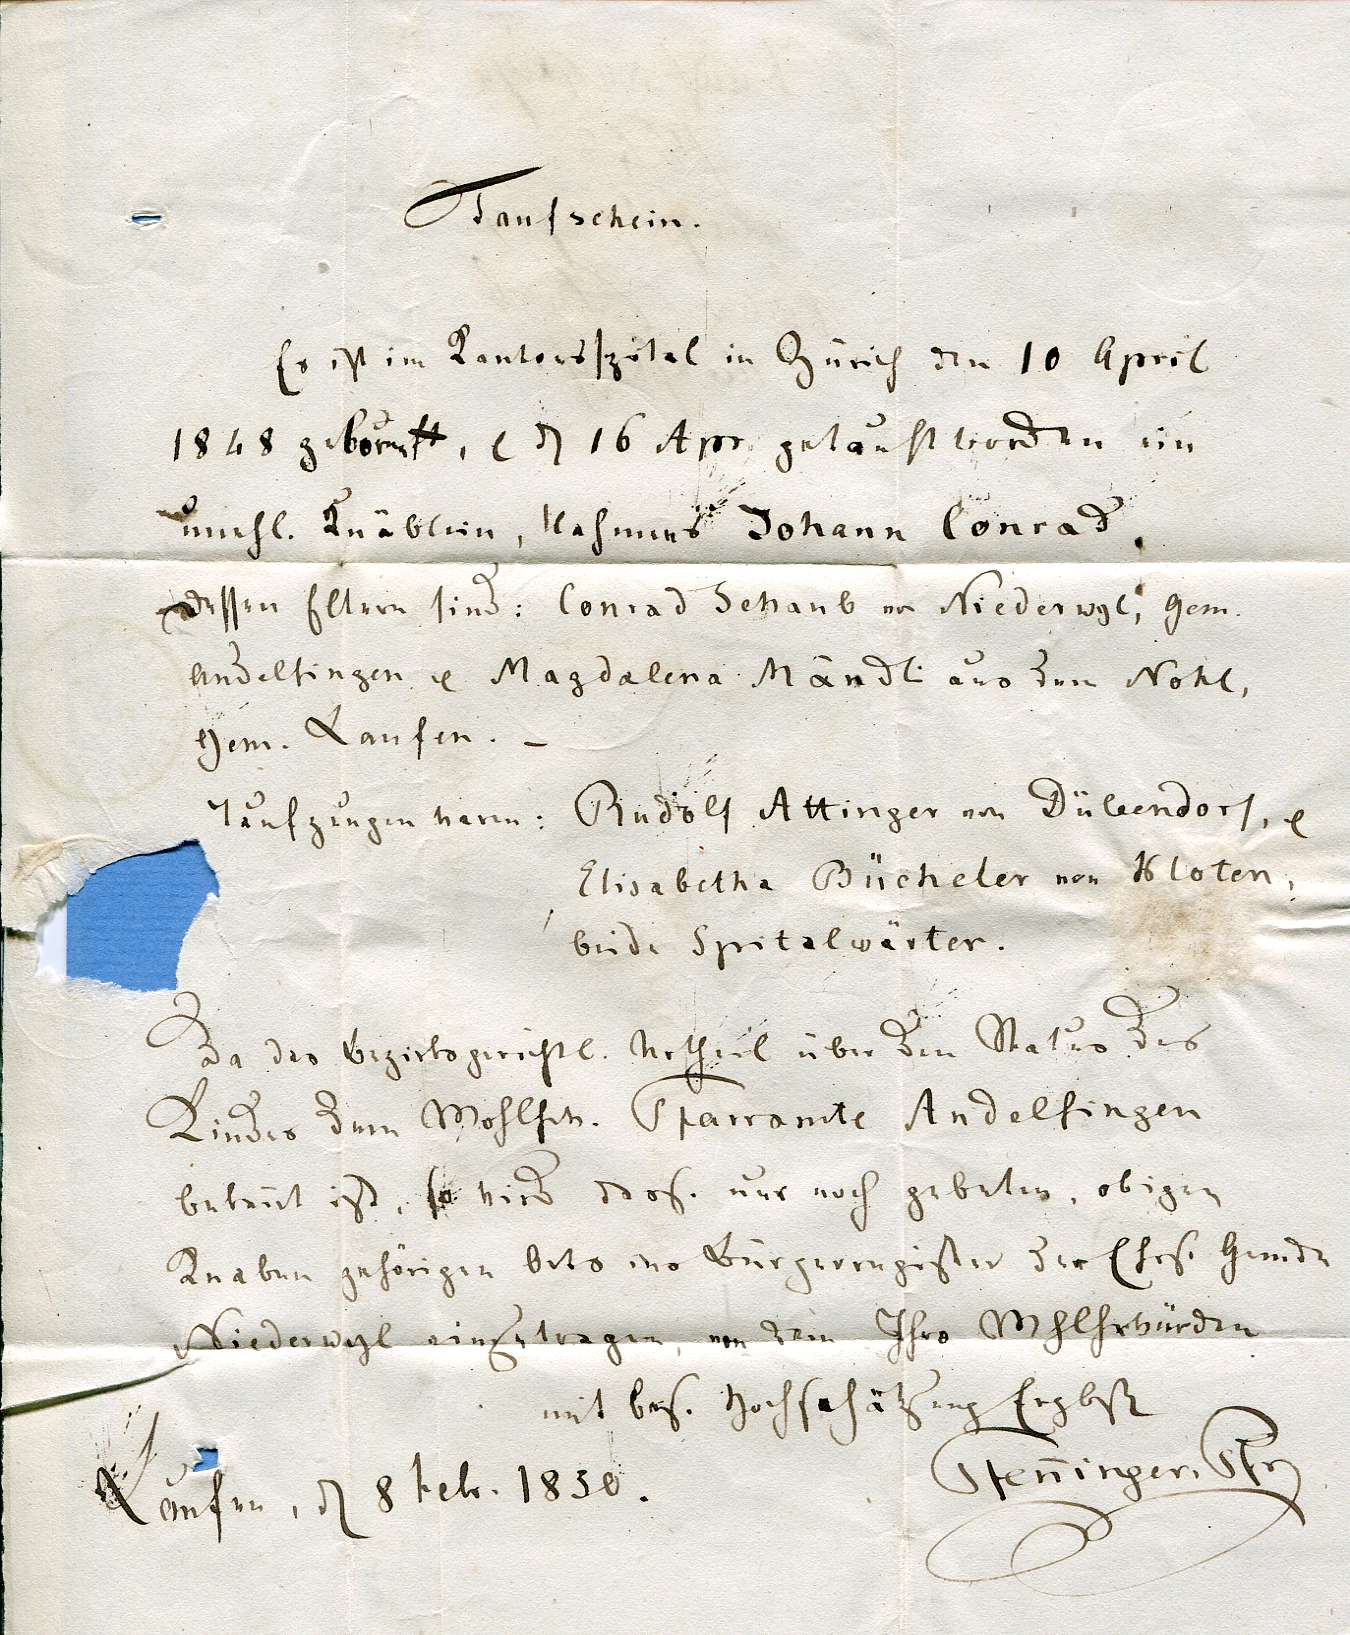 Taufschein.
Es ist im Kantonsspital in Zürich den 10 April
1848 geboren, & d 16 Apr. getauft worden ein
unehl. Knäblein, Nahmens Johann Conrad,
dessen Eltern sind: Conrad Schaub von Niederwyl, Gem.
Andelfingen & Magdalena Mändli aus dem Nohl,
Gem. Laufen. –
Taufzeugen waren: Rudolf Attinger von Dübendorf, &
Elisabetha Bücheler von Kloten,
beide Spitalwärter.
Da das bezirksgerichtl. Urtheil über den Status des
Kindes dem Wohlehrw. Pfarramte Andelfingen
bekannt ist, so wird dass. nur noch gebeten, obigen
Knaben gehörigen Orts ins Bürgerregister der Ehrs. Gemde
Niederwyl einzutragen, von dem Ihro WhlEhrwürden
mit bes. Hochschätzung Ergbst
Laufen, d 8 Feb. 1850. Pfenninger, Pfr